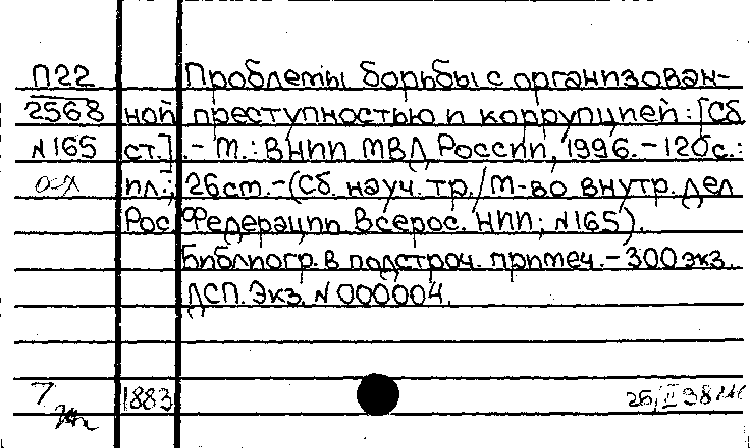 П22 Проблемы борьбы с организован-
2568 ной преступностью и коррупцией: [Сб
N165 ст.]. - М.: ВНИИ МВД России, 1996. - 120с.:
ил.; 26см. - (Сб. науч. тр./М-во внутр. дел
Рос. Федерации. Всерос. НИИ; N165).
Библиогр. в подстроч. примеч. - 300 экз.
ДСП. Экз. N 000004.
1883 26/II 98